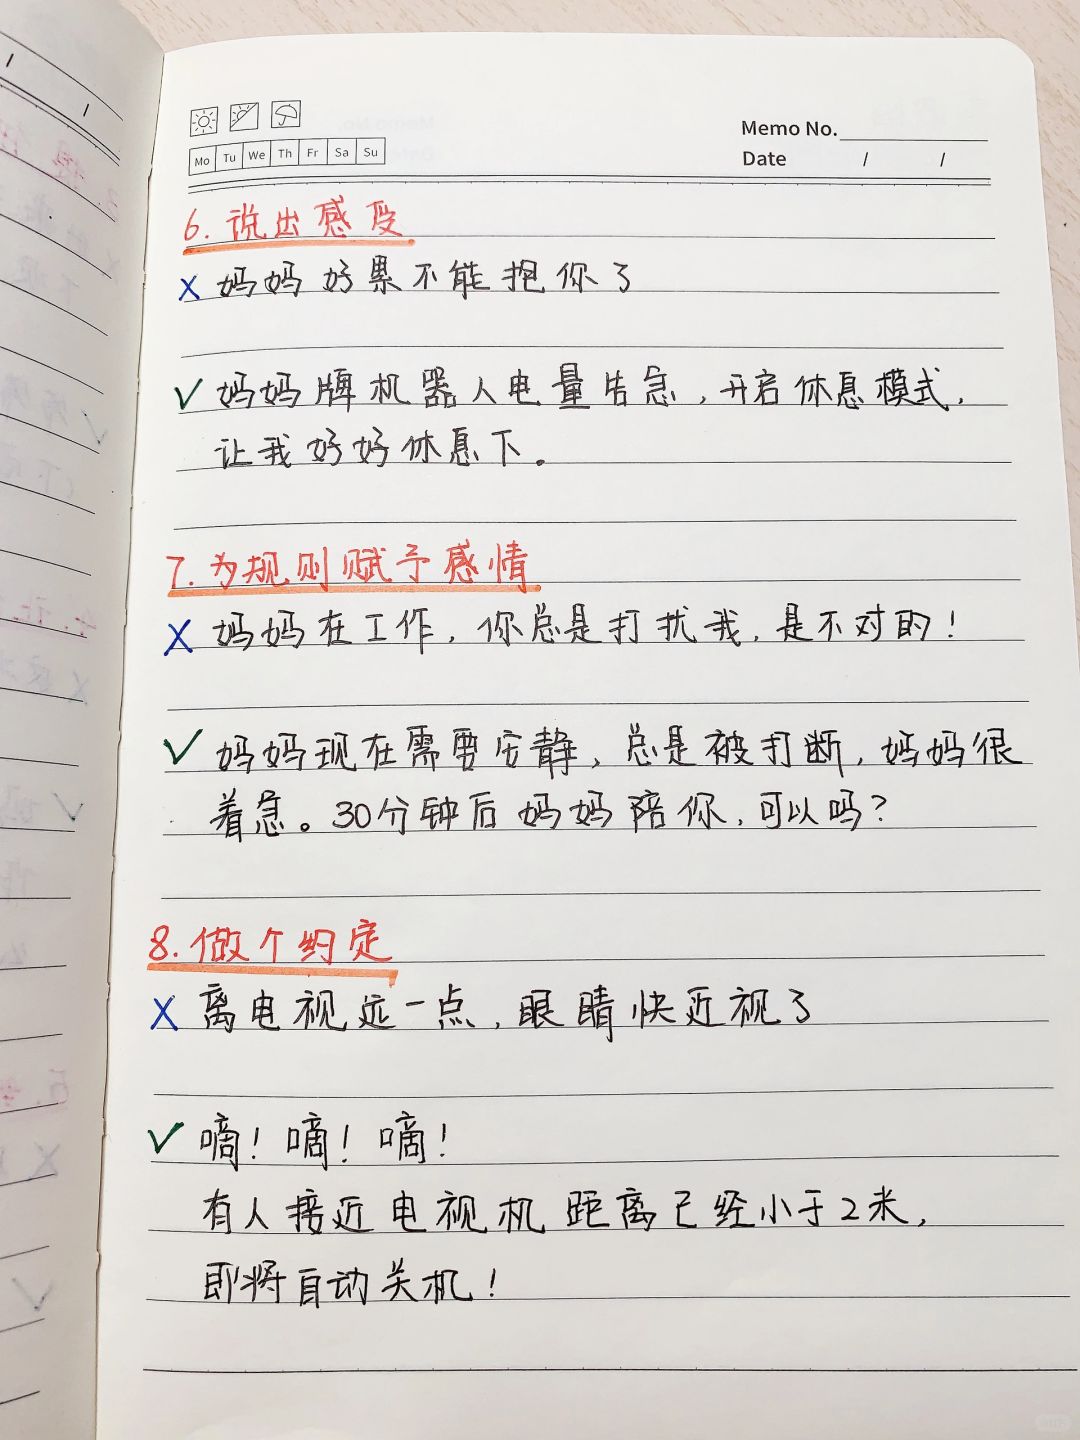 Mo Tu We Th Fr Sa Su
Memo No.
Date / /
6. 说出感受
X 妈妈好累不能抱你了
✓ 妈妈牌机器人电量告急，开启休息模式，
让我好好休息下。
7. 为规则赋予感情
X 妈妈在工作，你总是打扰我，是不对的！
✓ 妈妈现在需要安静，总是被打断，妈妈很
着急。30分钟后妈妈陪你，可以吗？
8. 做个约定
X 离电视远一点，眼睛快近视了
✓ 嘀！嘀！嘀！
有人接近电视机 距离已经小于2米，
即将自动关机！